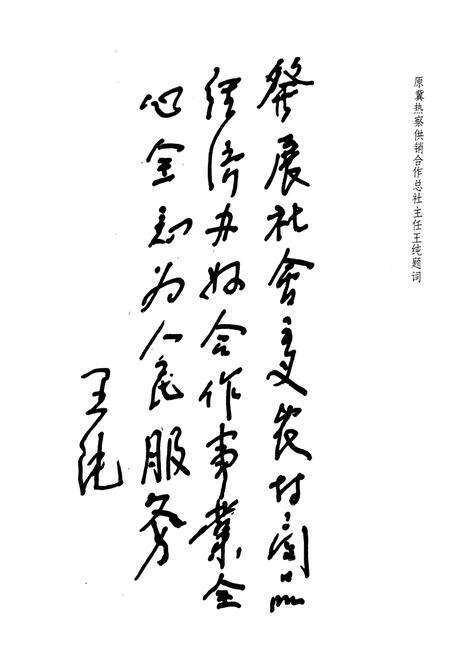 原冀热察供销合作总社主任王纯题词
發展社会主义农村商品
经济办好合作事業全
心全意为人民服务
王纯